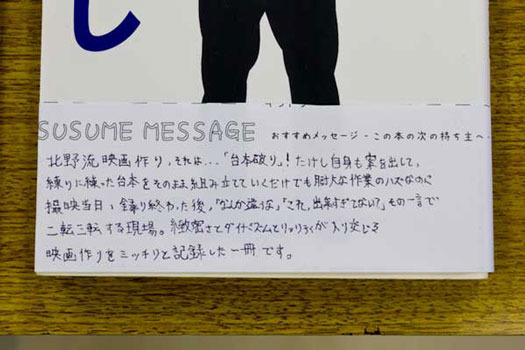 し
SUSUME MESSAGE おすすめメッセージ - この本の次の持ち主へ
北野流映画作り、それは...「台本破り」！たけし自身も案を出して、
練りに練った台本をそのまま組み立てていくだけでも膨大な作業のハズなのに
撮映当日、録り終わった後、「なんか違うな」「これ、出来すぎてない？」その一言で
二転三転する現場。緻密さとダイナミズムとリアリティが入り交じる
映画作りをミッチリと記録した一冊です。